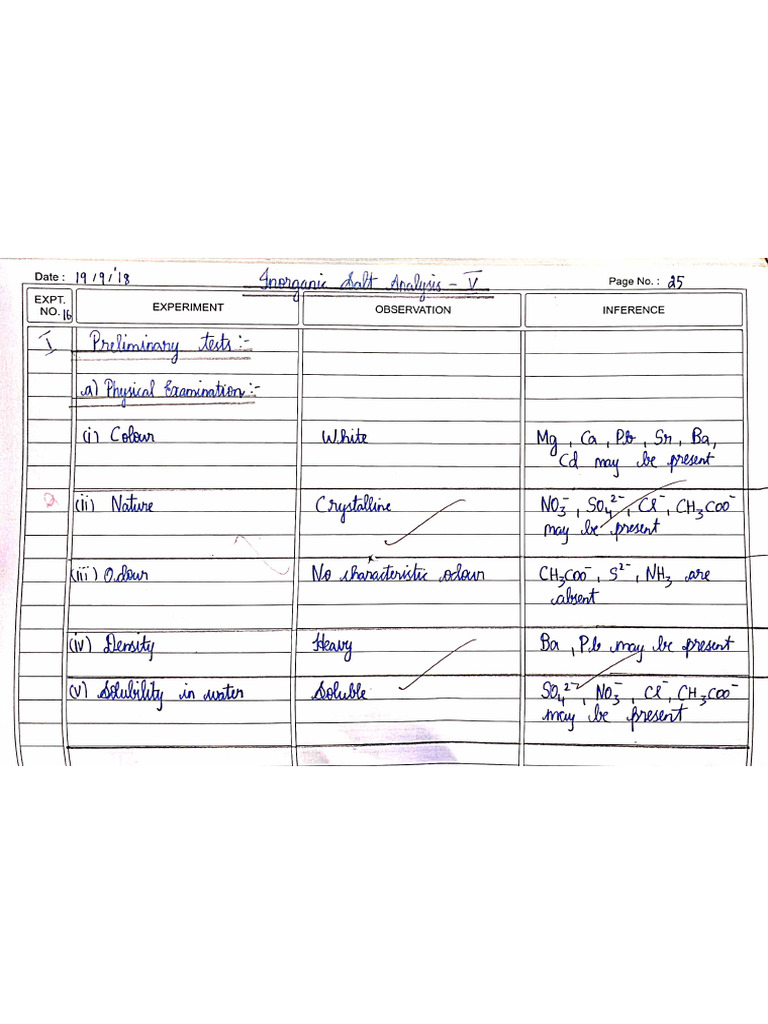 Date : 19/9/'18 Inorganic Salt Analysis - V Page No. : 25
EXPT. NO. 16 EXPERIMENT OBSERVATION INFERENCE
I Preliminary tests :-
a) Physical Examination :-
(i) Colour White Mg, Ca, Pb, Sr, Ba,
Cd may be present
2 (ii) Nature Crystalline NO₃⁻, SO₄²⁻, Cl⁻, CH₃COO⁻
may be present
(iii) Odour No characteristic odour CH₃COO⁻, S²⁻, NH₃ are
absent
(iv) Density Heavy Ba, Pb may be present
(v) Solubility in water Soluble SO₄²⁻, NO₃⁻, Cl⁻, CH₃COO⁻
may be present